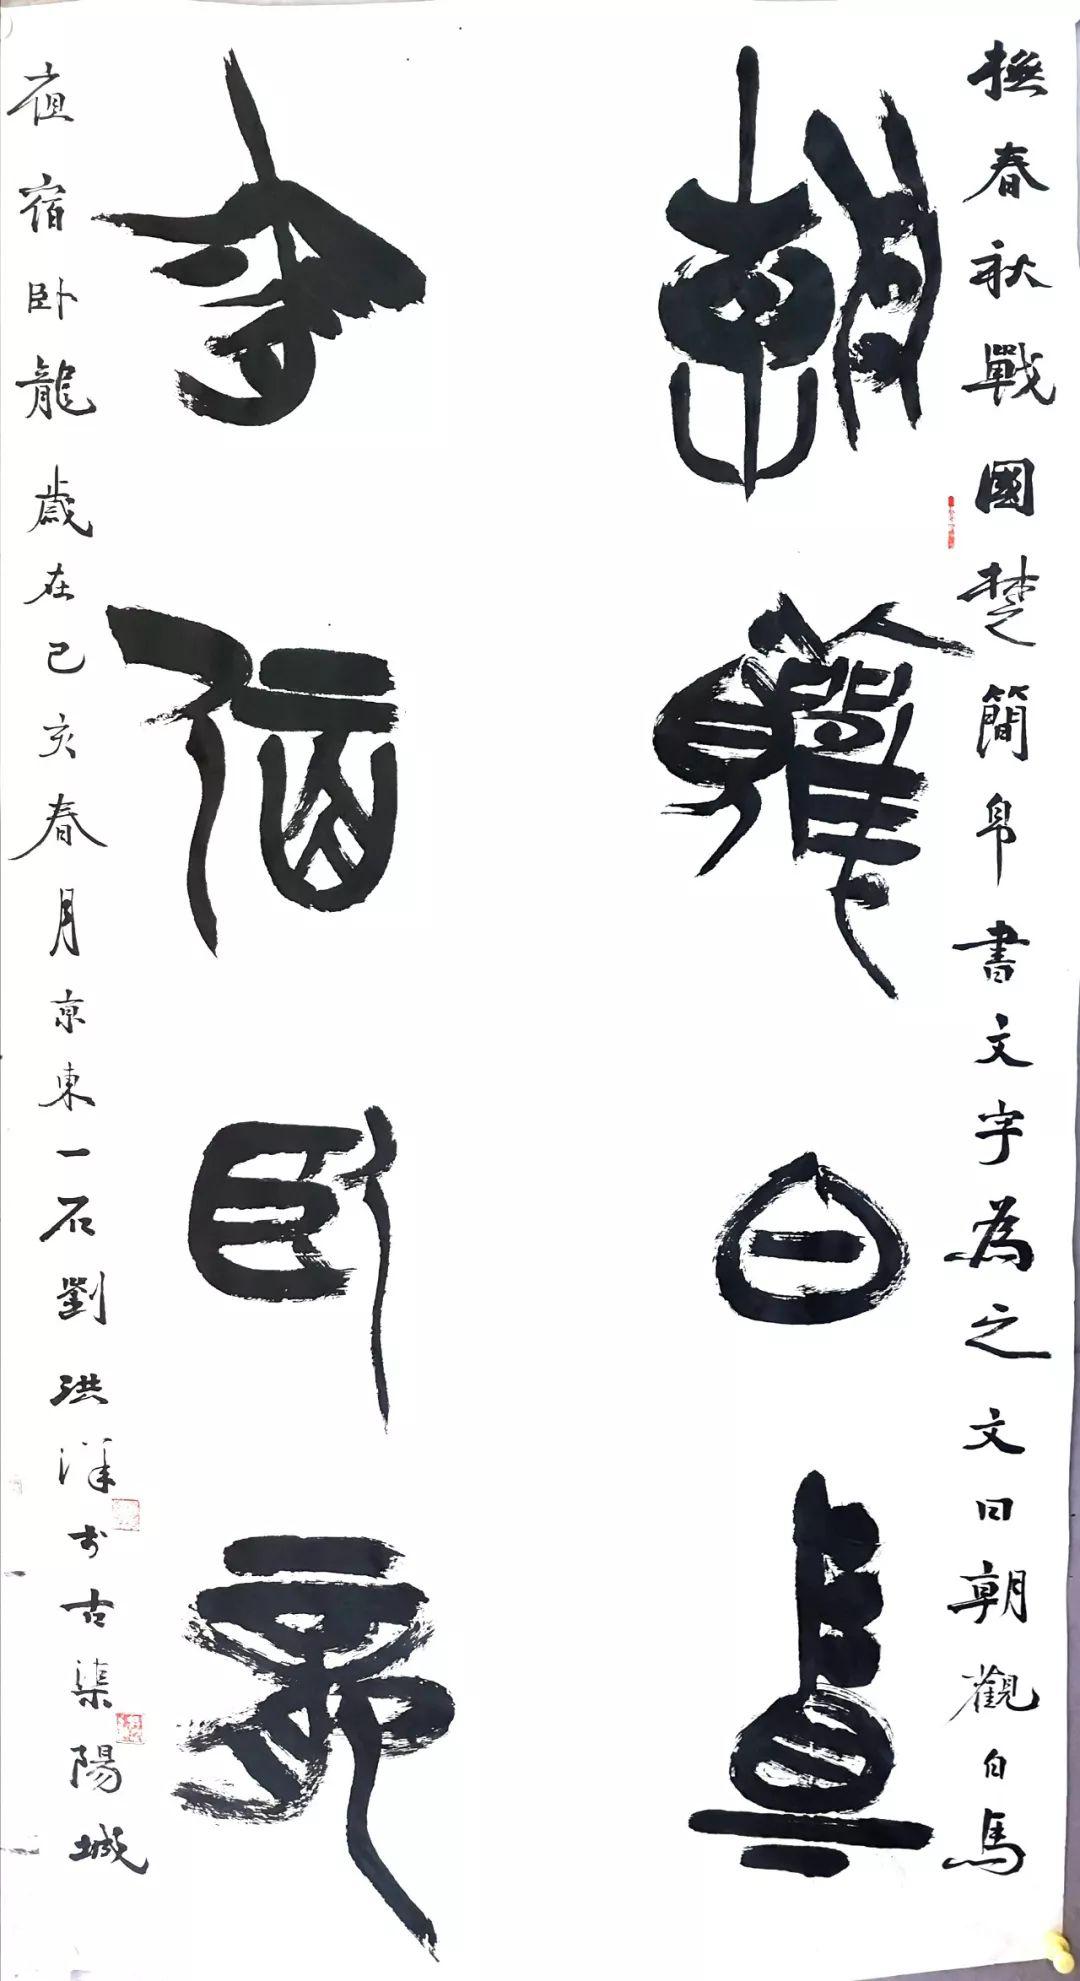 撫春秋戰國楚簡帛書文字為之文曰朝觀白馬
朝觀白馬
宿卧龍
宿卧龍歲在己亥春月京東一石劉洪洋於古渠陽城